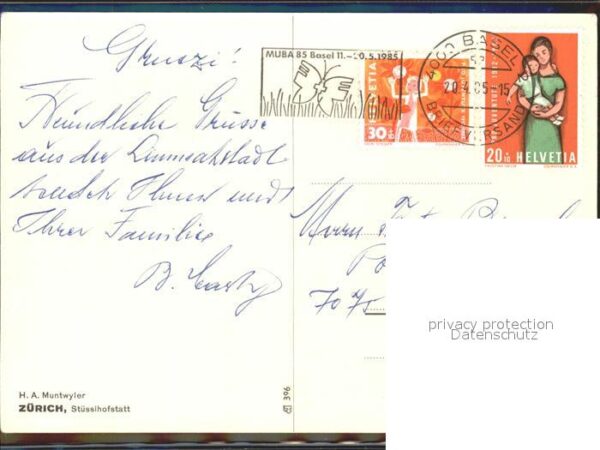 Gruezi!
Freundliche Grüsse
aus der Limmatstadt
sendet Ihnen und
Ihrer Familie
B.
MUBA 85 Basel 11.-20.5.1985
4000 BASEL
20.4.85-15
BRIEFVERSAND
HELVETIA
30+10
20+10 HELVETIA
Herrn
707
privacy protection
Datenschutz
H. A. Muntwyler
ZÜRICH, Stüssihofstatt
396